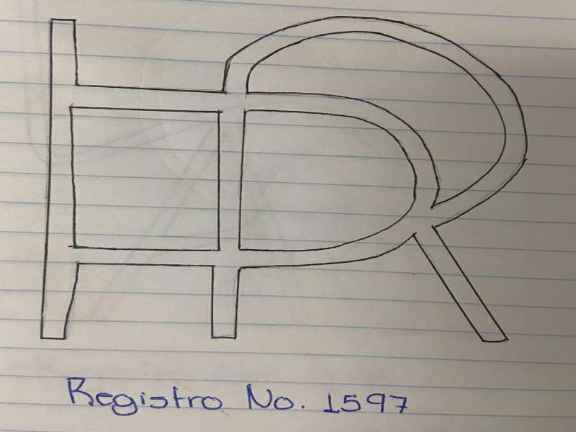 Registro No. 1597